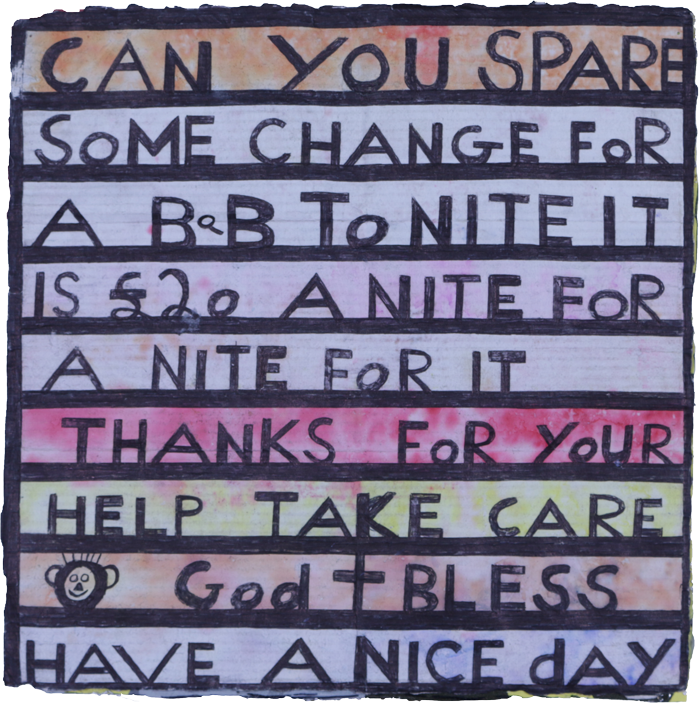 CAN YOU SPARE
SOME CHANGE FOR
A BaB TO NITE IT
IS £20 A NITE FOR
A NITE FOR IT
THANKS FOR YOUR
HELP TAKE CARE
God BLESS
HAVE A NICE dAY